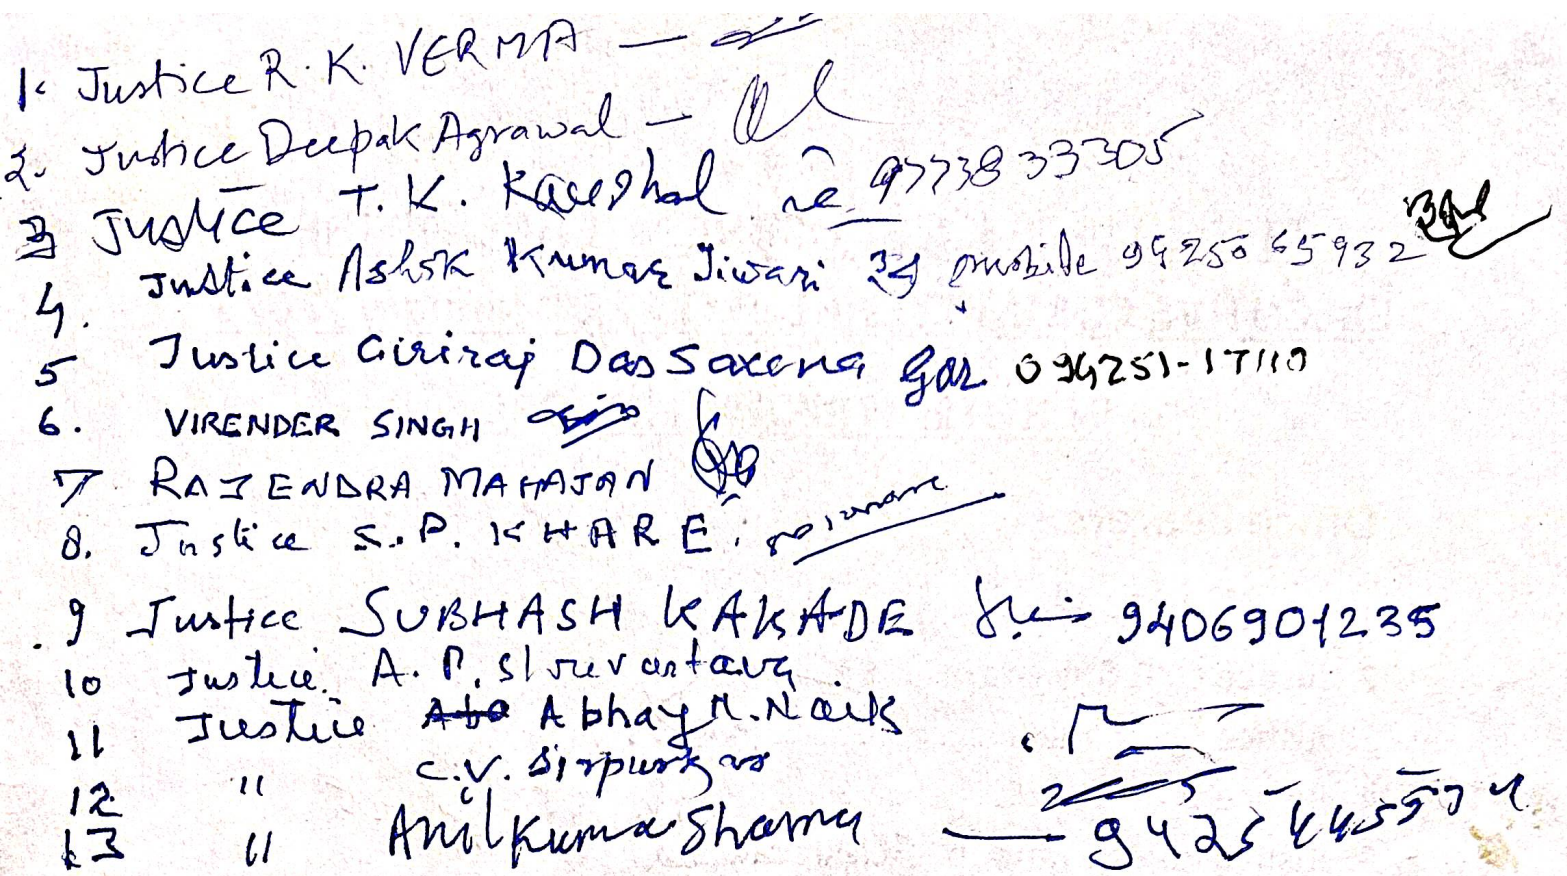 1. Justice R. K. VERMA —
2. Justice Deepak Agrawal —
3 Justice T. K. Kaushal 9773833305
4. Justice Ashok Kumar Tiwari mobile 9425065932
5 Justice Giriraj Das Saxena 094251-17110
6. VIRENDER SINGH
7 RAJENDRA MAHAJAN
8. Justice S.P. KHARE.
9 Justice SUBHASH KAKADE 9406901235
10 Justice. A. P. Shrivastava
11 Justice Abhay M. Naik
12 " C.V. Sirpurkar
13 " Anil Kumar Sharma —